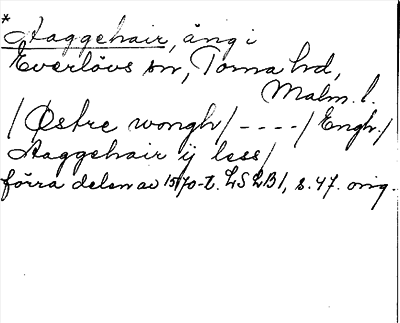 *
Haggehair, äng i
Everlövs sn, Torna hd,
Malm. l.
/Østre wongh/ ----/Engh./
Haggehair ij less/
förra delen av 1570-t. LSLB1, s. 47. orig.